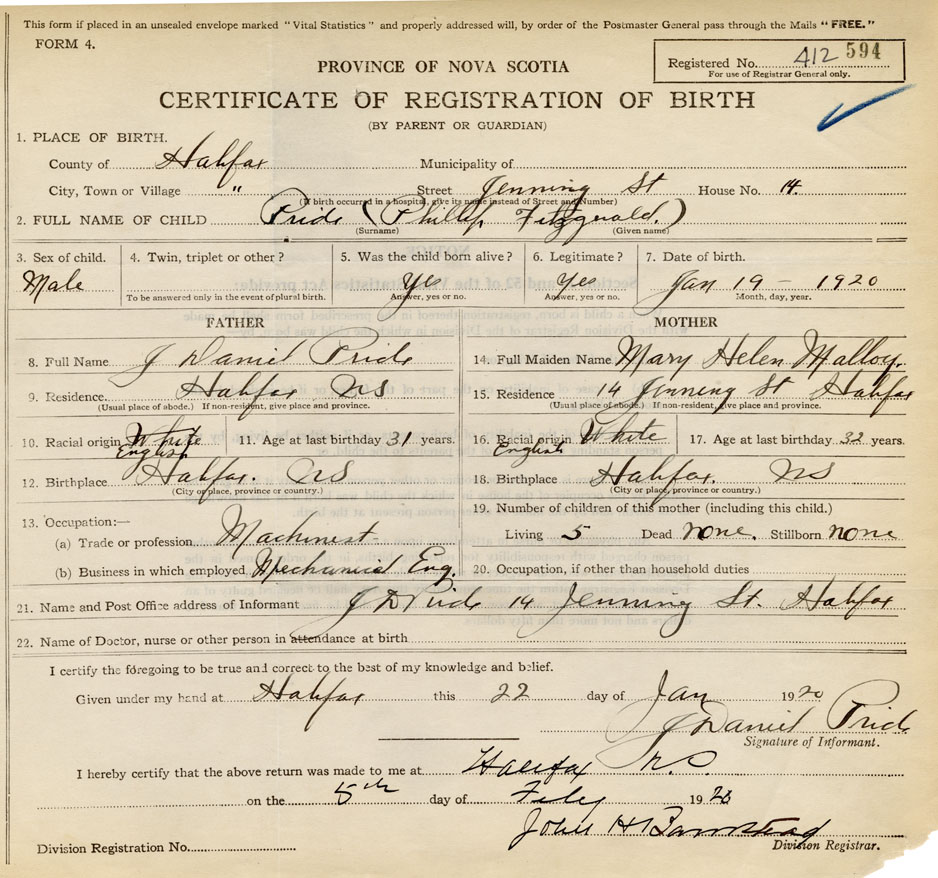 This form if placed in an unsealed envelope marked "Vital Statistics" and properly addressed will, by order of the Postmaster General pass through the Mails "FREE."
FORM 4.
Registered No. 412 594
For use of Registrar General only.
PROVINCE OF NOVA SCOTIA
CERTIFICATE OF REGISTRATION OF BIRTH
(BY PARENT OR GUARDIAN)
1. PLACE OF BIRTH.
County of Halifax Municipality of
City, Town or Village " Street Jenning St House No. 14.
(If birth occurred in a hospital, give its name instead of Street and Number)
2. FULL NAME OF CHILD Pride (Phillip Fitzgerald.)
(Surname) (Given name)
3. Sex of child. 4. Twin, triplet or other? 5. Was the child born alive? 6. Legitimate? 7. Date of birth.
Male Yes Yes Jan 19 - 1920
To be answered only in the event of plural birth. Answer, yes or no. Answer, yes or no. Month, day, year.
FATHER MOTHER
8. Full Name J Daniel Pride 14. Full Maiden Name Mary Helen Malloy.
9. Residence Halifax NS 15. Residence 14 Jenning St Halifax
(Usual place of abode.) If non-resident, give place and province. (Usual place of abode.) If non-resident, give place and province.
10. Racial origin White English 11. Age at last birthday 31 years. 16. Racial origin White English 17. Age at last birthday 32 years.
12. Birthplace Halifax. NS 18. Birthplace Halifax. NS
(City or place, province or country.) (City or place, province or country.)
13. Occupation:— 19. Number of children of this mother (including this child.)
(a) Trade or profession Machinest Living 5 Dead none. Stillborn none
(b) Business in which employed Mechanical Eng. 20. Occupation, if other than household duties
21. Name and Post Office address of Informant J D Pride 14 Jenning St. Halifax
22. Name of Doctor, nurse or other person in attendance at birth
I certify the foregoing to be true and correct to the best of my knowledge and belief.
Given under my hand at Halifax this 22 day of Jan 1920
J Daniel Pride
Signature of Informant.
I hereby certify that the above return was made to me at Halifax N.S.
on the 5th day of Feby 1920
John H Barnstead
Division Registration No. Division Registrar.